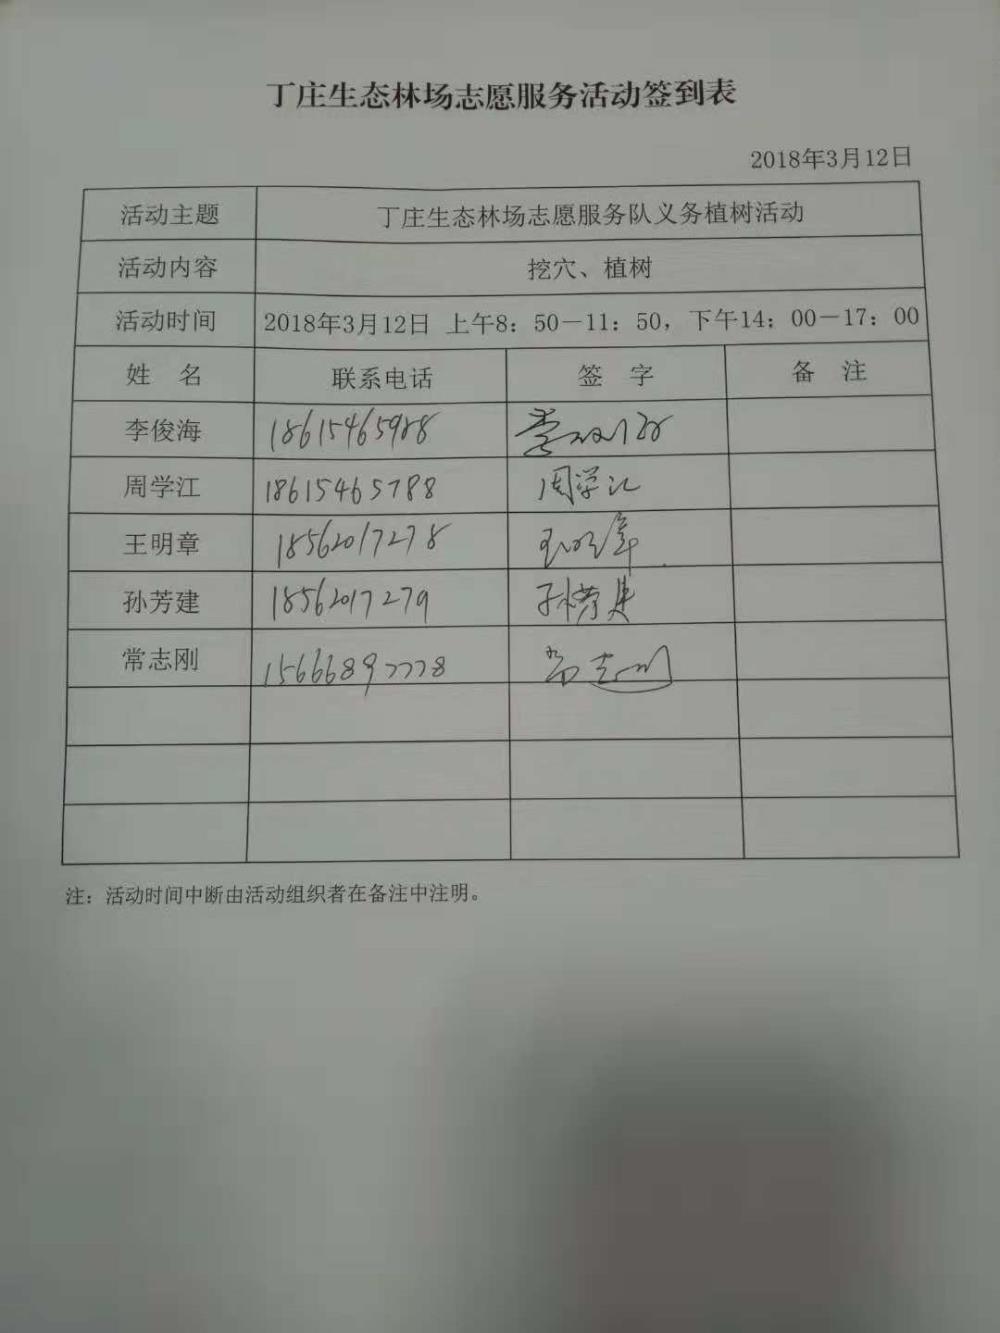 丁庄生态林场志愿服务活动签到表
2018年3月12日
活动主题 丁庄生态林场志愿服务队义务植树活动
活动内容 挖穴、植树
活动时间 2018年3月12日 上午8：50－11：50，下午14：00－17：00
姓 名 联系电话 签 字 备 注
李俊海 18615465988 李俊海
周学江 18615465788 周学江
王明章 18562017278 王明章
孙芳建 18562017279 孙芳建
常志刚 15666897778 常志刚
注：活动时间中断由活动组织者在备注中注明。